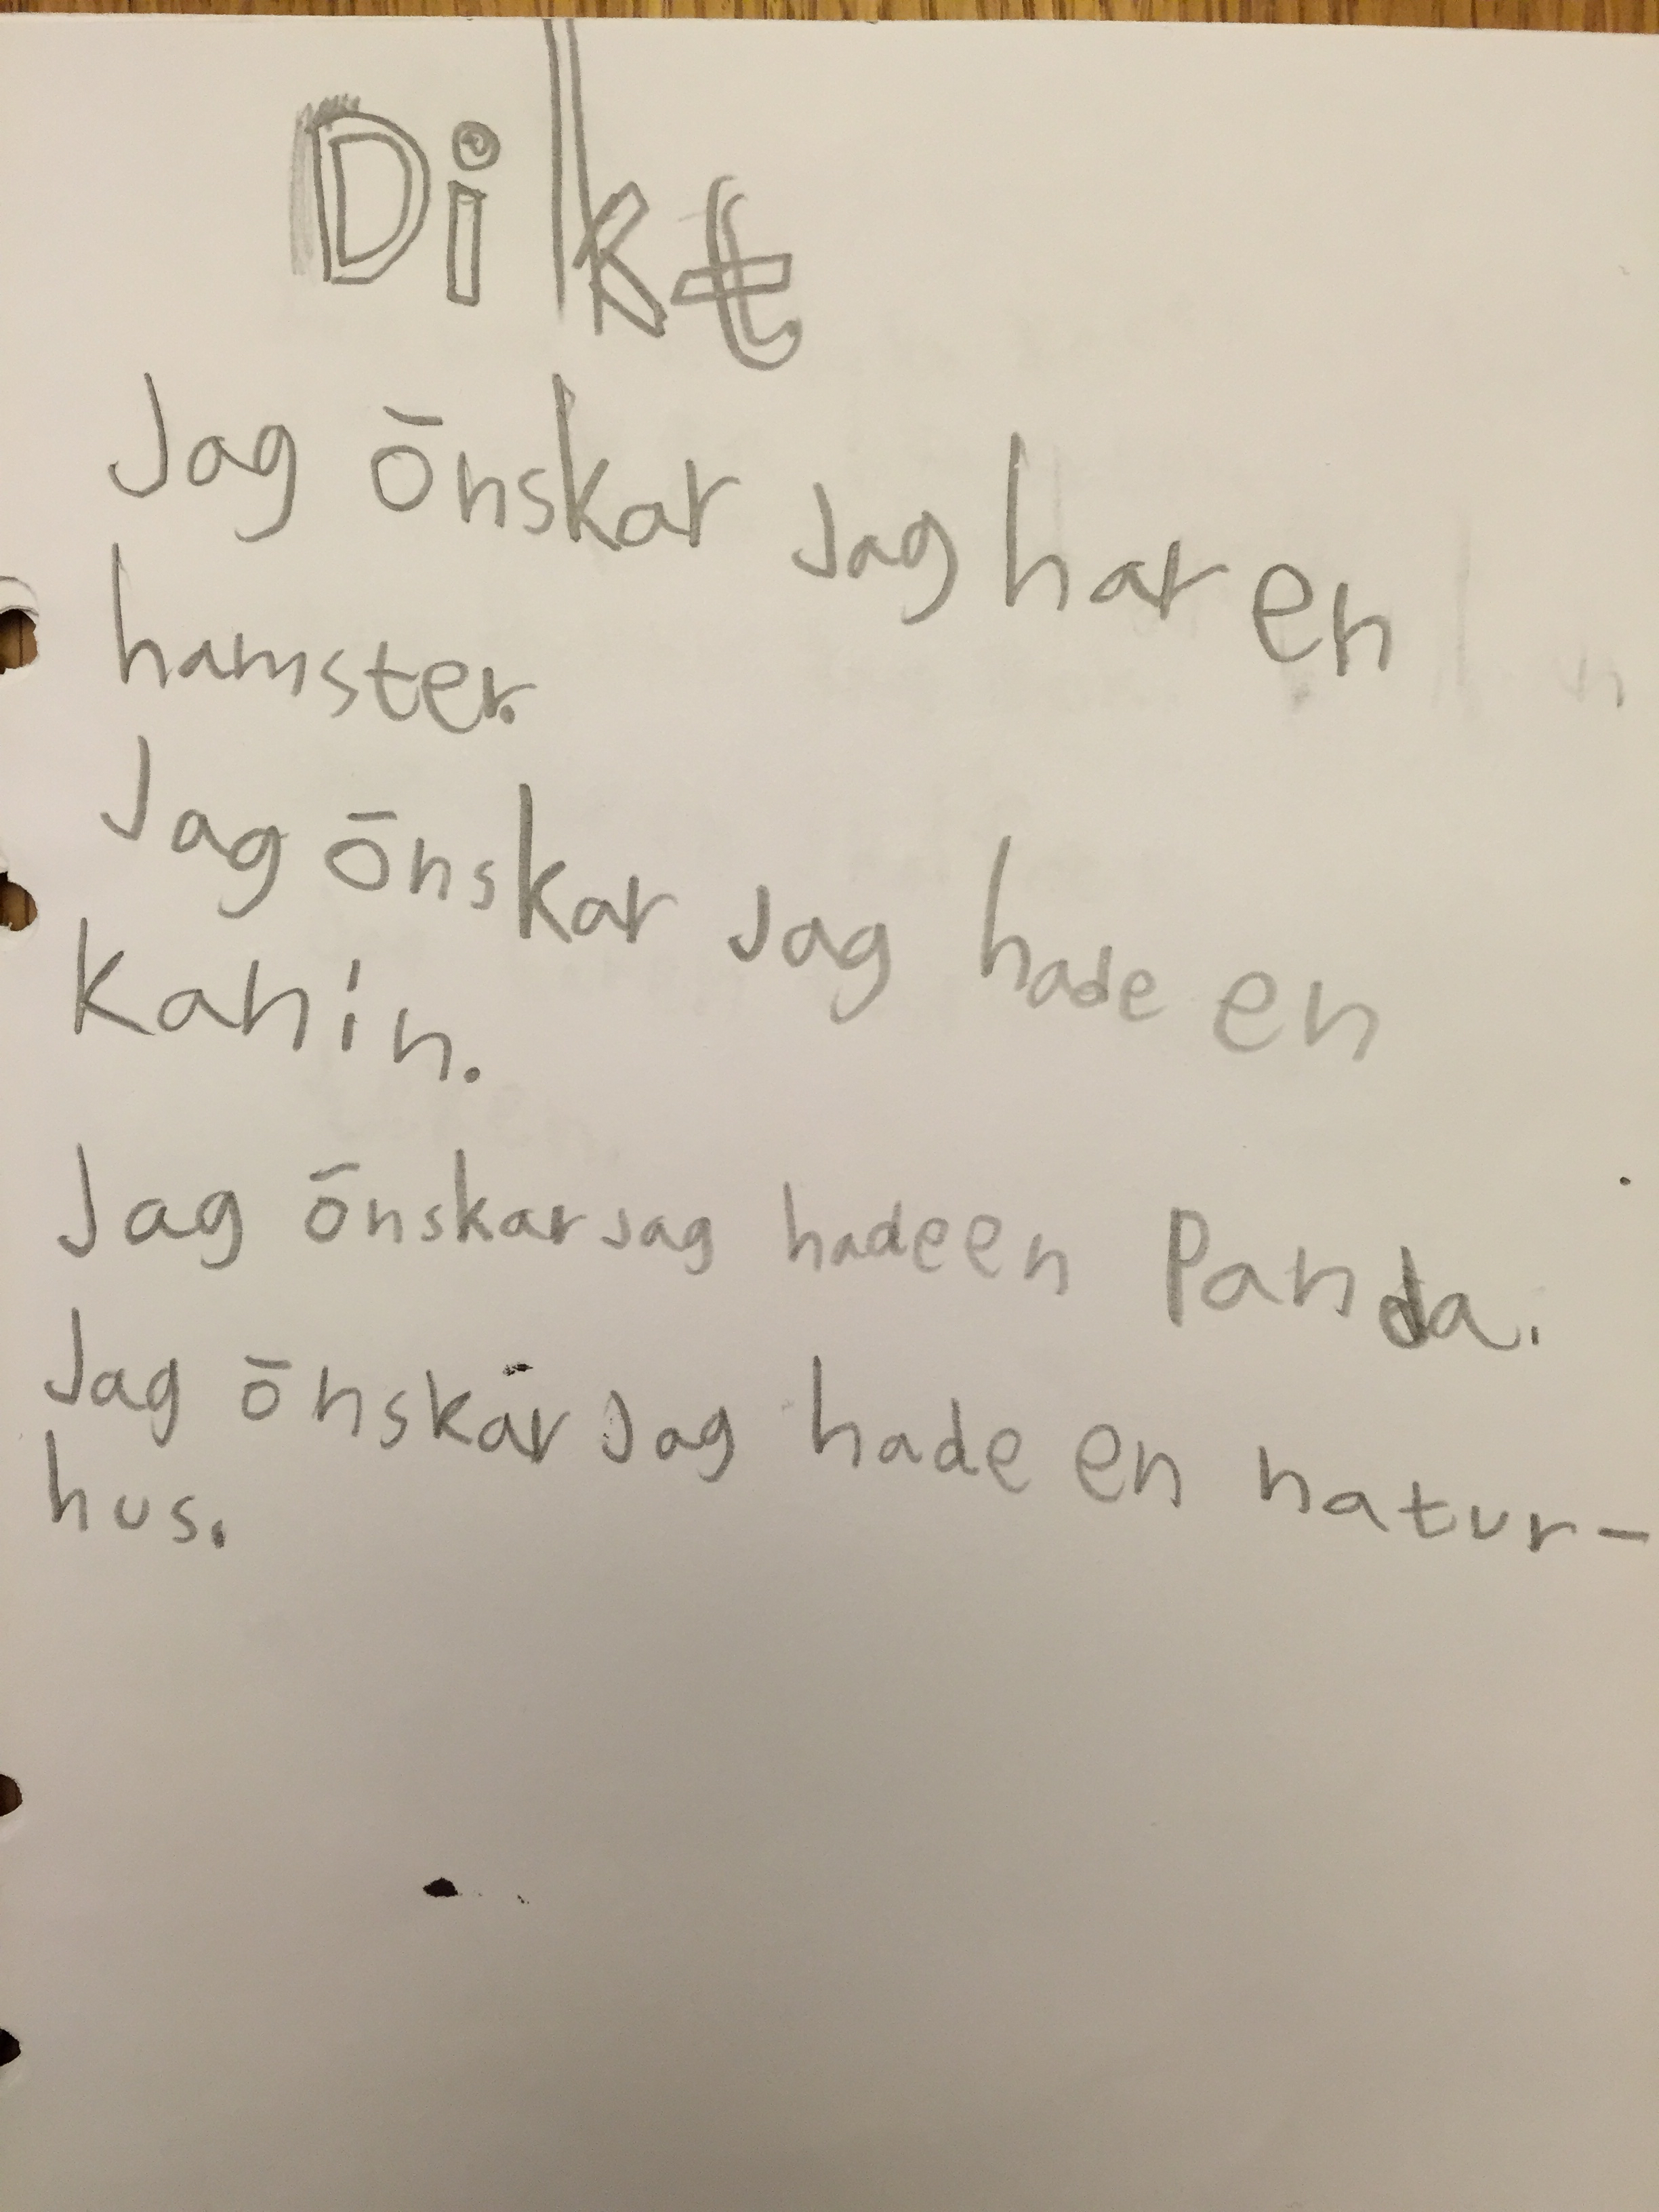 Dikt
Jag önskar jag har en
hamster.
Jag önskar jag hade en
Kanin.
Jag önskar jag hade en Panda.
Jag önskar jag hade en natur-
hus.